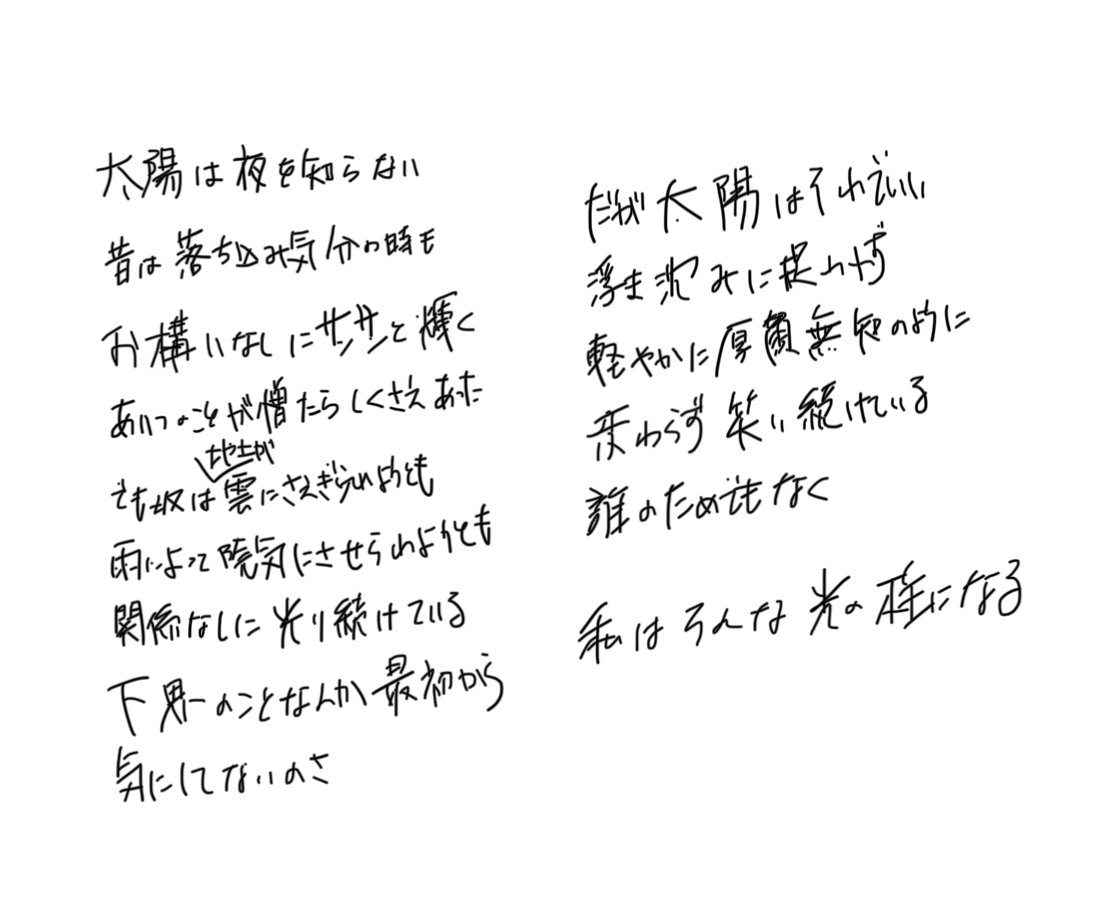 太陽は夜を知らない
昔は落ち込み気分の時も
お構いなしにサンサンと輝く
あいつのことが憎たらしくさえあった
地上が
でも奴は雲にさえぎられようとも
雨によって陰気にさせられようとも
関係なしに光り続けている
下界のことなんか最初から
気にしてないのさ
だが太陽はそれでいい
浮き沈みに捉われず
軽やかに厚顔無知のように
変わらず笑い続けている
誰のためでもなく
私はそんな光の柱になる